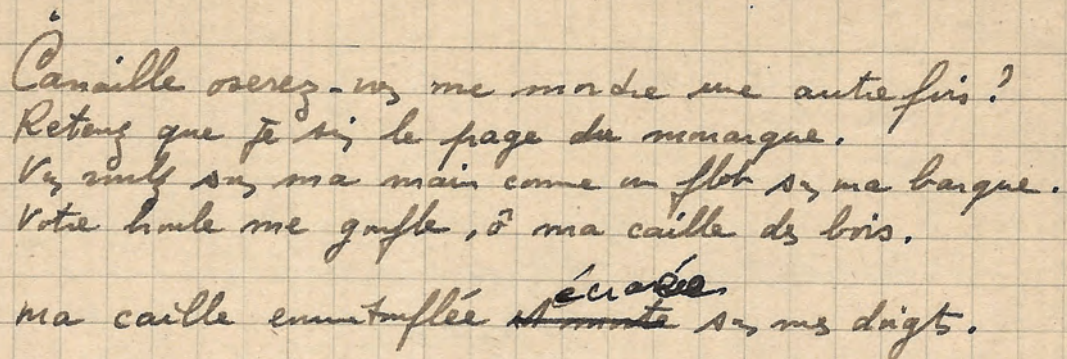 Canaille oserez-vous me mordre une autre fois ?
Retenez que je suis le page du monarque.
Vous roulez sous ma main comme un flot sous ma barque.
Votre houle me gonfle, ô ma caille des bois.
écrasée
ma caille emmitouflée sous mes doigts.